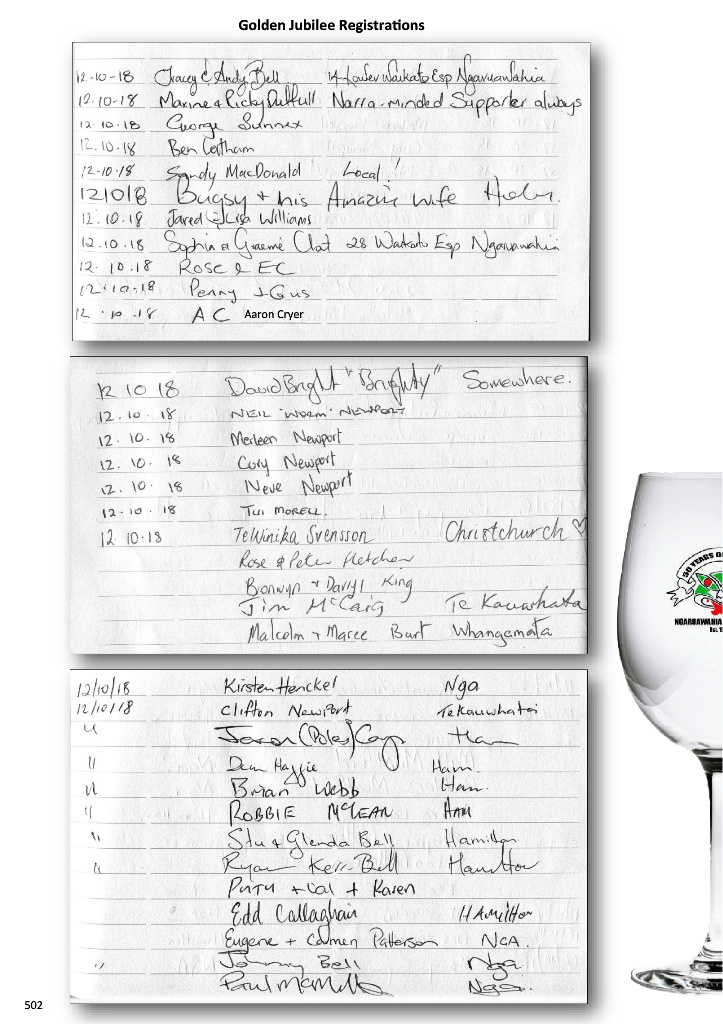 Golden Jubilee Registrations
12-10-18 Tracey & Andy Bell 14 Lower Waikato Esp Ngaruawahia
12.10-18 Maxine & Ricky Duffull Narra-minded Supporter always
12.10.18 George Sunnex
12.10.18 Ben Latham
12.10.18 Sandy MacDonald Local!
121018 Bugsy + his Amazing wife
12.10.18 Jared & Lisa Williams
12.10.18 Sophia & Graeme 28 Waikato Esp Ngaruawahia
12.10.18 Rose & EC
12.10.18 Penny + Gus
12.10.18 A C Aaron Cryer
12 10 18 David Bright "Brighty" Somewhere.
12.10.18 NEIL 'WORM' NEWPORT
12.10.18 Merleen Newport
12.10.18 Cory Newport
12.10.18 Neve Newport
12.10.18 TUI MORELL.
12.10.18 TeWinika Svensson Christchurch ♡
Rose & Peter Fletcher
Bronwyn + Darryl King
Jim McCaig Te Kauwhata
Malcolm + Maree Burt Whangamata
12/10/18 Kirsten Henckel Nga
12/10/18 Clifton Newport Te Kauwhata
" (Poles) Ham
" Dean Haggie Ham.
" Brian Webb Ham.
" ROBBIE McLEAN HAM
" Stu & Glenda Bell Hamilton
" Ryan Kerr-Bell Hamilton
+ Val + Karen
Edd Callaghan HAMilton
Eugene + Carmen Patterson NGA.
" Johnny Bell Nga.
Paul Nga.
50 YEARS OF
NGARUAWAHIA
Est. 1
502